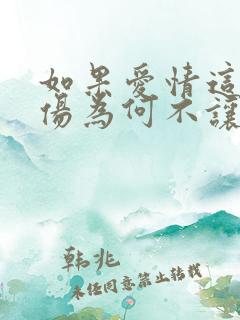 如果愛情這
傷為何不讓
韩兆
未经同意禁止转载